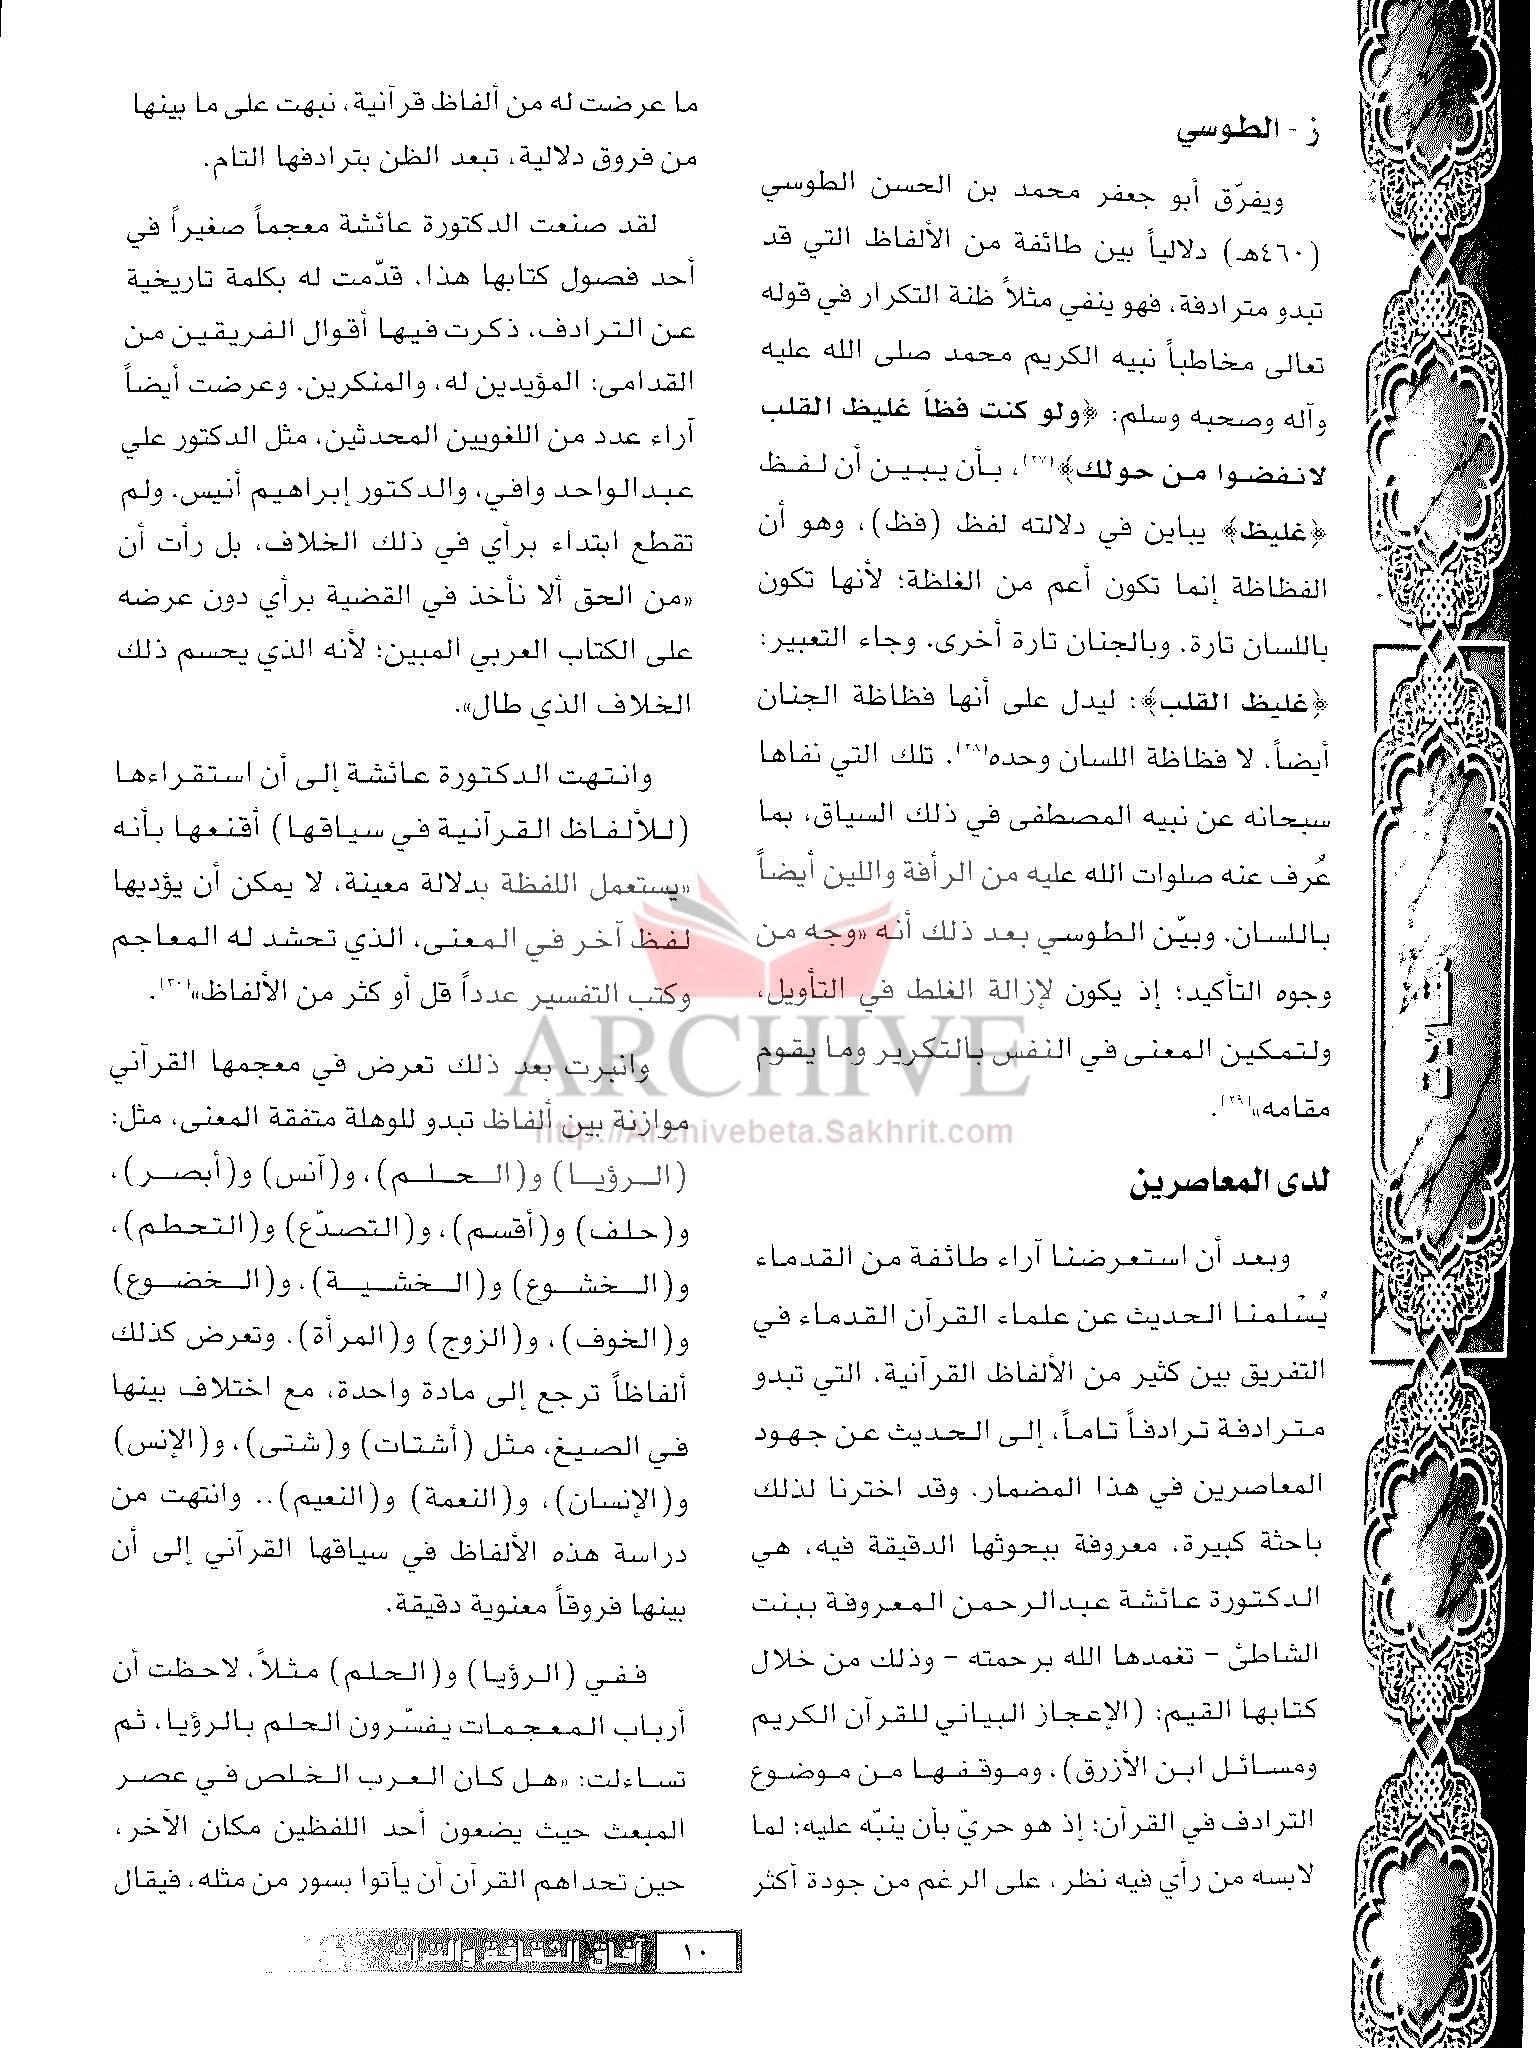 ز - الطوسي
ويفرّق أبو جعفر محمد بن الحسن الطوسي
(٤٦٠هـ) دلالياً بين طائفة من الألفاظ التي قد
تبدو مترادفة، فهو ينفي مثلاً ظنة التكرار في قوله
تعالى مخاطباً نبيه الكريم محمد صلى الله عليه
وآله وصحبه وسلم: ﴿ولو كنت فظاً غليظ القلب
لانفضوا من حولك﴾(٢٧)، بأن يبين أن لفظ
﴿غليظ﴾ يباين في دلالته لفظ (فظ)، وهو أن
الفظاظة إنما تكون أعم من الغلظة؛ لأنها تكون
باللسان تارة، وبالجنان تارة أخرى. وجاء التعبير:
﴿غليظ القلب﴾: ليدل على أنها فظاظة الجنان
أيضاً، لا فظاظة اللسان وحده(٢٨)، تلك التي نفاها
سبحانه عن نبيه المصطفى في ذلك السياق، بما
عُرف عنه صلوات الله عليه من الرأفة واللين أيضاً
باللسان. وبيّن الطوسي بعد ذلك أنه «وجه من
وجوه التأكيد؛ إذ يكون لإزالة الغلط في التأويل،
ولتمكين المعنى في النفس بالتكرير وما يقوم
مقامه»(٢٩).
لدى المعاصرين
وبعد أن استعرضنا آراء طائفة من القدماء
يُسْلمنا الحديث عن علماء القرآن القدماء في
التفريق بين كثير من الألفاظ القرآنية، التي تبدو
مترادفة ترادفاً تاماً، إلى الحديث عن جهود
المعاصرين في هذا المضمار. وقد اخترنا لذلك
باحثة كبيرة، معروفة ببحوثها الدقيقة فيه، هي
الدكتورة عائشة عبدالرحمن المعروفة ببنت
الشاطئ - تغمدها الله برحمته - وذلك من خلال
كتابها القيم: (الإعجاز البياني للقرآن الكريم
ومسائل ابن الأزرق)، وموقفها من موضوع
الترادف في القرآن؛ إذ هو حريّ بأن ينبّه عليه؛ لما
لابسه من رأي فيه نظر، على الرغم من جودة أكثر
ما عرضت له من ألفاظ قرآنية، نبهت على ما بينها
من فروق دلالية، تبعد الظن بترادفها التام.
لقد صنعت الدكتورة عائشة معجماً صغيراً في
أحد فصول كتابها هذا، قدّمت له بكلمة تاريخية
عن الترادف، ذكرت فيها أقوال الفريقين من
القدامى: المؤيدين له، والمنكرين. وعرضت أيضاً
آراء عدد من اللغويين المحدثين، مثل الدكتور علي
عبدالواحد وافي، والدكتور إبراهيم أنيس. ولم
تقطع ابتداء برأي في ذلك الخلاف، بل رأت أن
«من الحق ألا نأخذ في القضية برأي دون عرضه
على الكتاب العربي المبين؛ لأنه الذي يحسم ذلك
الخلاف الذي طال».
وانتهت الدكتورة عائشة إلى أن استقراءها
(للألفاظ القرآنية في سياقها) أقنعها بأنه
«يستعمل اللفظة بدلالة معينة، لا يمكن أن يؤديها
لفظ آخر في المعنى، الذي تحشد له المعاجم
وكتب التفسير عدداً قل أو كثر من الألفاظ»(٣٠).
وانبرت بعد ذلك تعرض في معجمها القرآني
موازنة بين ألفاظ تبدو للوهلة متفقة المعنى، مثل:
(الرؤيا) و(الحلم)، و(آنس) و(أبصر)،
و(حلف) و(أقسم)، و(التصدّع) و(التحطم)،
و(الخشوع) و(الخشية)، و(الخضوع)
و(الخوف)، و(الزوج) و(المرأة). وتعرض كذلك
ألفاظاً ترجع إلى مادة واحدة، مع اختلاف بينها
في الصيغ، مثل (أشتات) و(شتى)، و(الإنس)
و(الإنسان)، و(النعمة) و(النعيم).. وانتهت من
دراسة هذه الألفاظ في سياقها القرآني إلى أن
بينها فروقاً معنوية دقيقة.
ففي (الرؤيا) و(الحلم) مثلاً، لاحظت أن
أرباب المعجمات يفسّرون الحلم بالرؤيا، ثم
تساءلت: «هل كان العرب الخلص في عصر
المبعث حيث يضعون أحد اللفظين مكان الآخر،
حين تحداهم القرآن أن يأتوا بسور من مثله، فيقال
ARCHIVE
http://Archivebeta.Sakhrit.com
مقالات
١٠ آفاق الثقافة والتراث